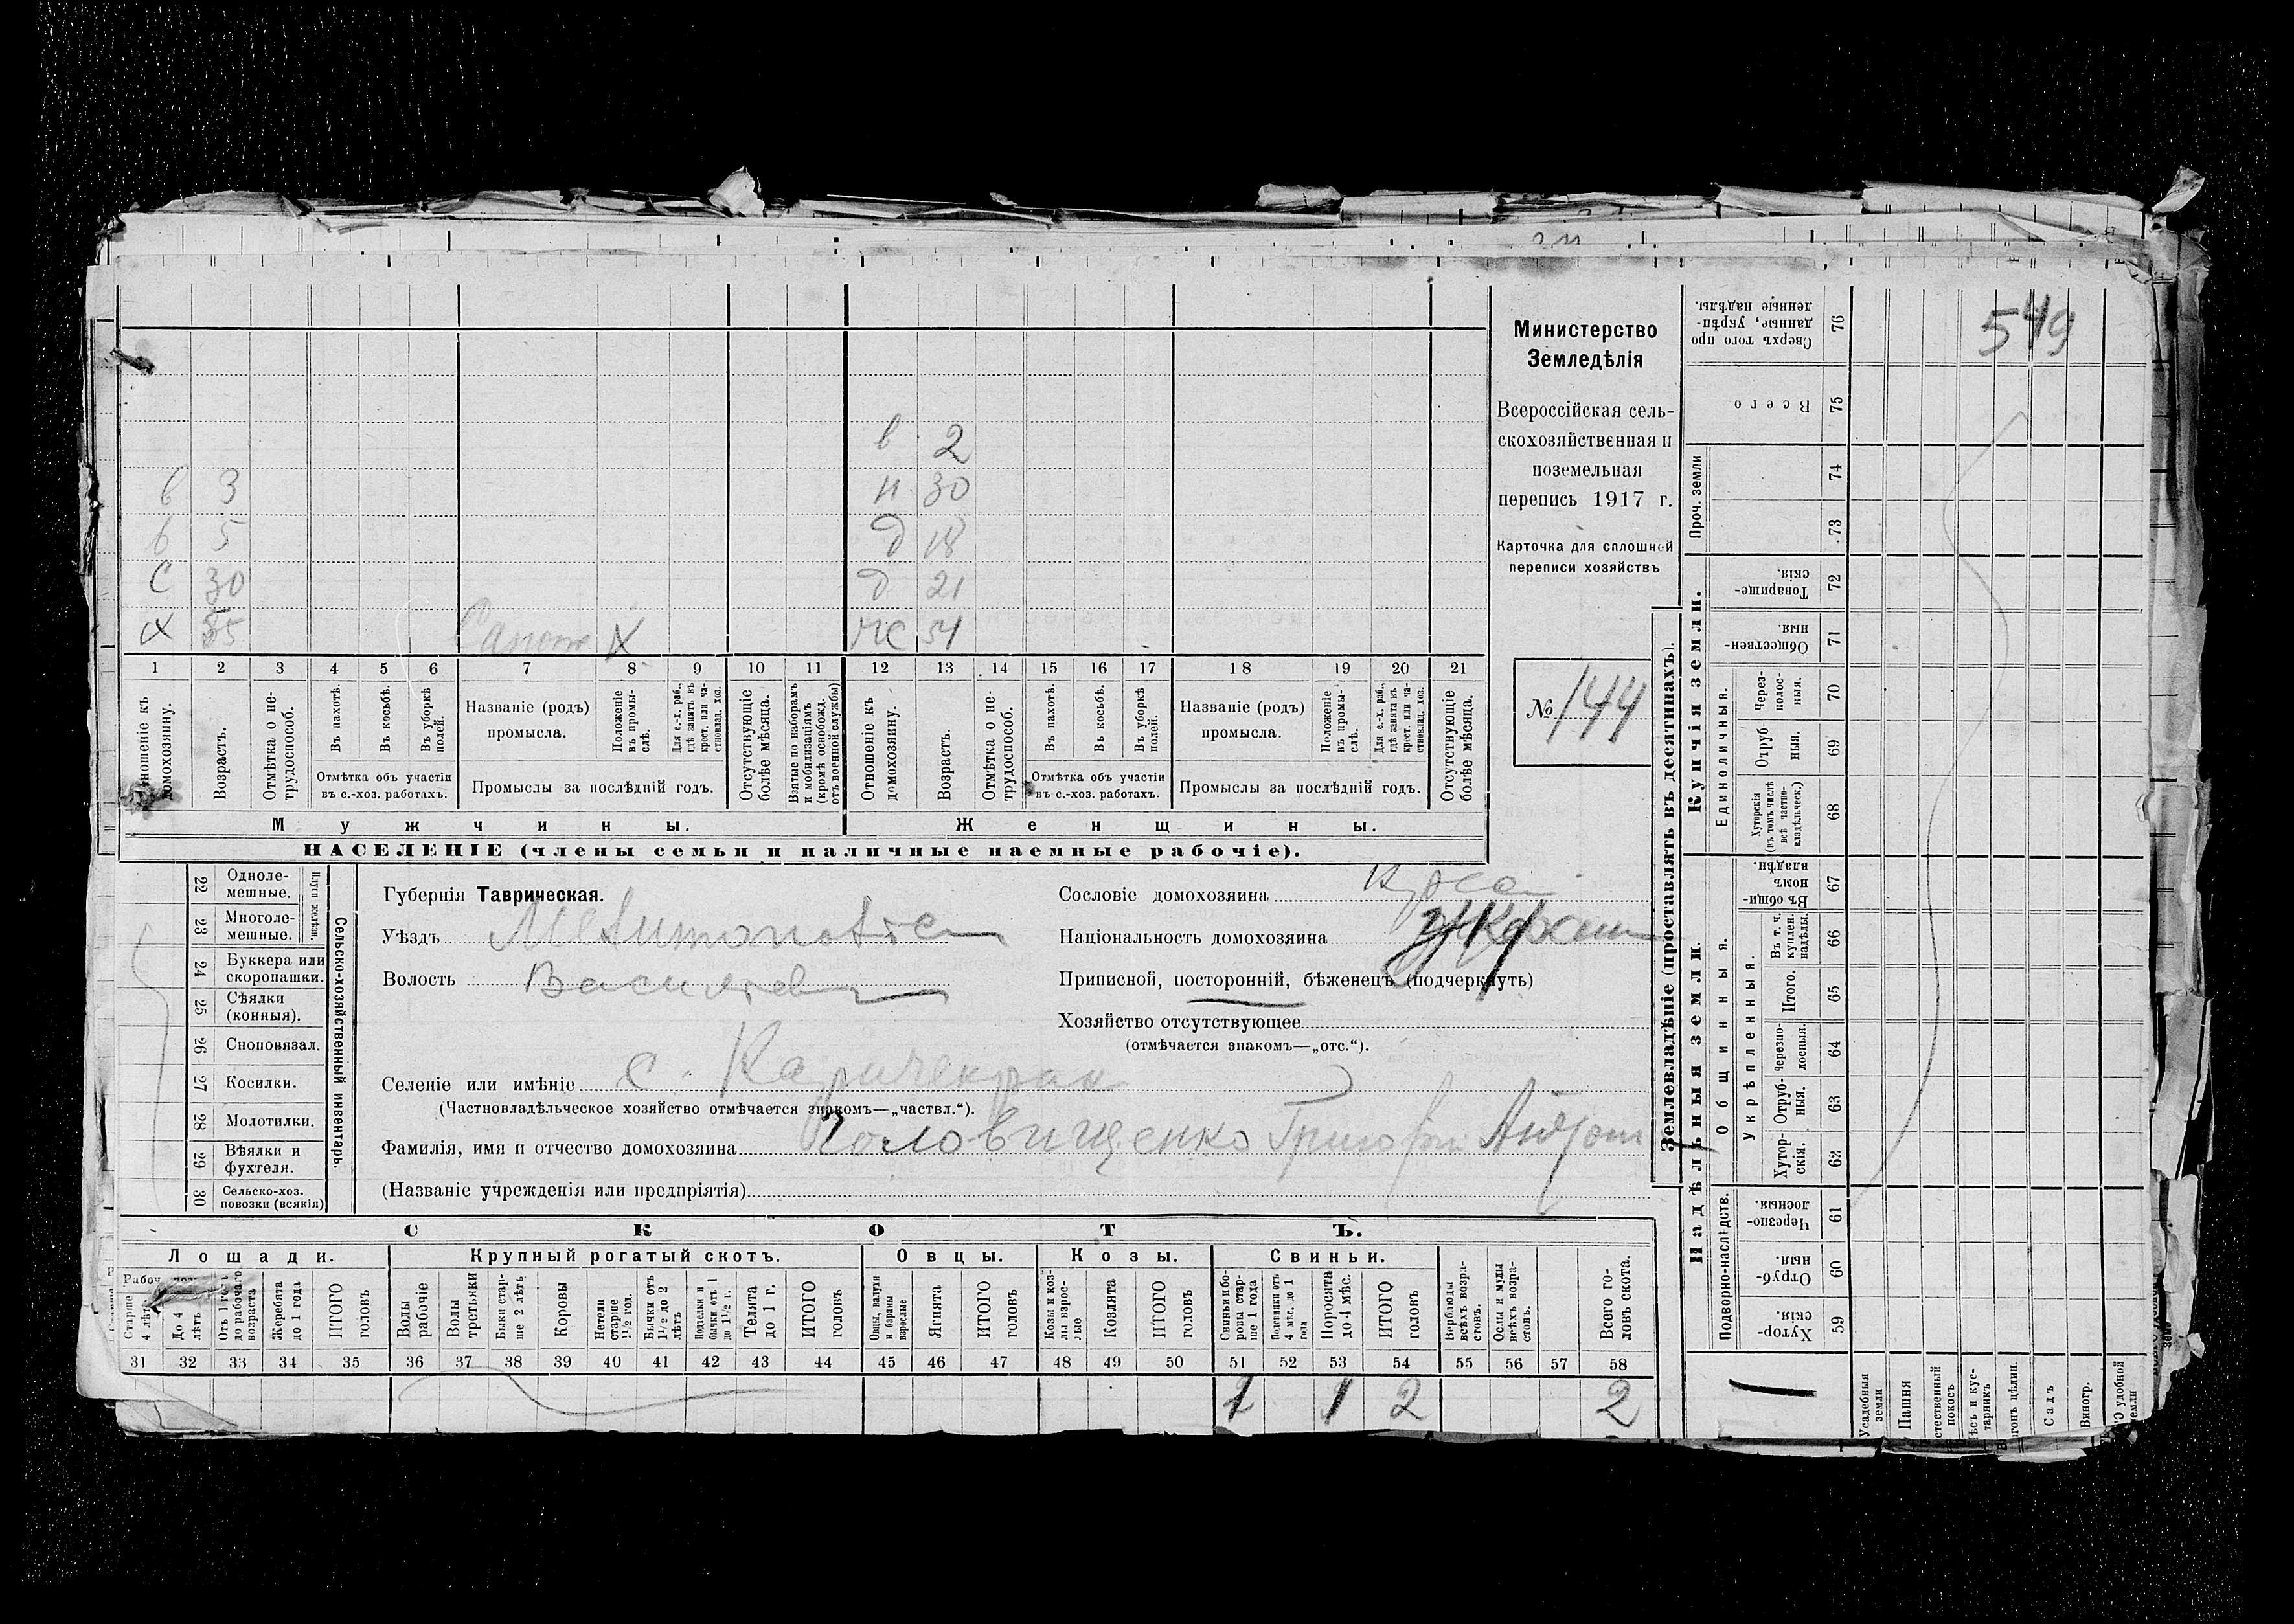 549
в 2
в 3 н 30
в 5 д 18
С 30 д 21
Х 55 Сапож Х жс 54
1 2 3 4 5 6 7 8 9 10 11 12 13 14 15 16 17 18 19 20 21
Отношеніе къ домохозяину.
Возрастъ.
Отмѣтка о не-
трудоспособ.
Въ пахотѣ.
Въ косьбѣ.
Въ уборкѣ
полей.
Отмѣтка объ участіи
въ с.-хоз. работахъ.
Названіе (родъ)
промысла.
Положеніе
въ промы-
слѣ.
Для с.-х. раб.,
гдѣ занятъ въ
крест. или ча-
стновлад. хоз.
Промыслы за послѣдній годъ.
Отсутствующіе
болѣе мѣсяца.
Взятые по наборамъ
и мобилизаціямъ
(кромѣ освобожд.
отъ военной службы)
Отношеніе къ
домохозяину.
Возрастъ.
Отмѣтка о не-
трудоспособ.
Въ пахотѣ.
Въ косьбѣ.
Въ уборкѣ
полей.
Отмѣтка объ участіи
въ с.-хоз. работахъ.
Названіе (родъ)
промысла.
Положеніе
въ промы-
слѣ.
Для с.-х. раб.,
гдѣ занята въ
крест. или ча-
стновлад. хоз.
Промыслы за послѣдній годъ.
Отсутствующіе
болѣе мѣсяца.
Мужчины. Женщины.
НАСЕЛЕНІЕ (члены семьи и наличные наемные рабочіе).
Министерство
Земледѣлія
Всероссійская сель-
скохозяйственная и
поземельная
перепись 1917 г.
Карточка для сплошной
переписи хозяйствъ
№ 144
22 Одноле-
мешные.
23 Многоле-
мешные.
Плуги желѣзн.
24 Буккера или
скоропашки.
25 Сѣялки
(конныя).
26 Сноповязал.
27 Косилки.
28 Молотилки.
29 Вѣялки и
фухтеля.
30 Сельско-хоз.
повозки (всякія)
Сельско-хозяйственный инвентарь.
Губернія Таврическая.
Уѣздъ Мелитопольск
Волость Васильев
Селеніе или имѣніе с. Карачекрак
(Частновладѣльческое хозяйство отмѣчается знакомъ—„частвл.“).
Фамилія, имя и отчество домохозяина Головищенко Григорій
(Названіе учрежденія или предпріятія)
Сословіе домохозяина
Національность домохозяина
Приписной, посторонній, бѣженецъ (подчеркнуть)
Хозяйство отсутствующее
(отмѣчается знакомъ—„отс.“).
СКОТЪ.
Лошади. Крупный рогатый скотъ. Овцы. Козы. Свиньи.
Старше
4 лѣтъ
До 4
лѣтъ
Отъ 1 года
до рабочаго
возраста
Жеребята
до 1 года
ИТОГО
головъ
Волы
рабочіе
Волы
третьяки
Быки стар-
ше 2 лѣтъ
Коровы
Нетели
старше
1½ год.
Бычки отъ
1½ до 2
лѣтъ
Подтелки и
бычки отъ 1
до 1½ г.
Телята
до 1 г.
ИТОГО
головъ
Овцы, валухи
и бараны
взрослые
Ягнята
ИТОГО
головъ
Козы и коз-
лы взрос-
лые
Козлята
ИТОГО
головъ
Свиньи и бо-
ровы стар-
ше 1 года
Подсвинки отъ
4 мѣс. до 1
года
Поросята
до 4 мѣс.
ИТОГО
головъ
Верблюды
всѣхъ возра-
стовъ.
Ослы и мулы
всѣхъ возра-
стовъ.
Всего го-
ловъ скота.
31 32 33 34 35 36 37 38 39 40 41 42 43 44 45 46 47 48 49 50 51 52 53 54 55 56 57 58
1 1 2 2
Землевладѣніе (проставлять въ десятинахъ).
Купчія земли.
Надѣльныя земли.
Сверхъ того про
данные, укрѣп-
ленные надѣлы. 76
Всего 75
Проч. земли 74
73
Товарище-
скія. 72
Обществен-
ныя. 71
Единоличныя.
Через-
полос-
ныя. 70
Отруб-
ныя. 69
Хуторскія
(въ томъ числѣ
всѣ частно-
владѣльческ.) 68
Общинныя.
Въ общи-
номъ
владѣн. 67
Укрѣпленныя.
Въ т. ч.
куплен.
надѣлы. 66
Итого. 65
Черезпо-
лосныя. 64
Отруб-
ныя. 63
Хутор-
скія. 62
Подворно-наслѣдств.
Черезпо-
лосныя. 61
Отруб-
ныя. 60
Хутор-
скія. 59
Усадебныя
земли
Пашня
покосъ
тарникъ
Садъ
Виногр.